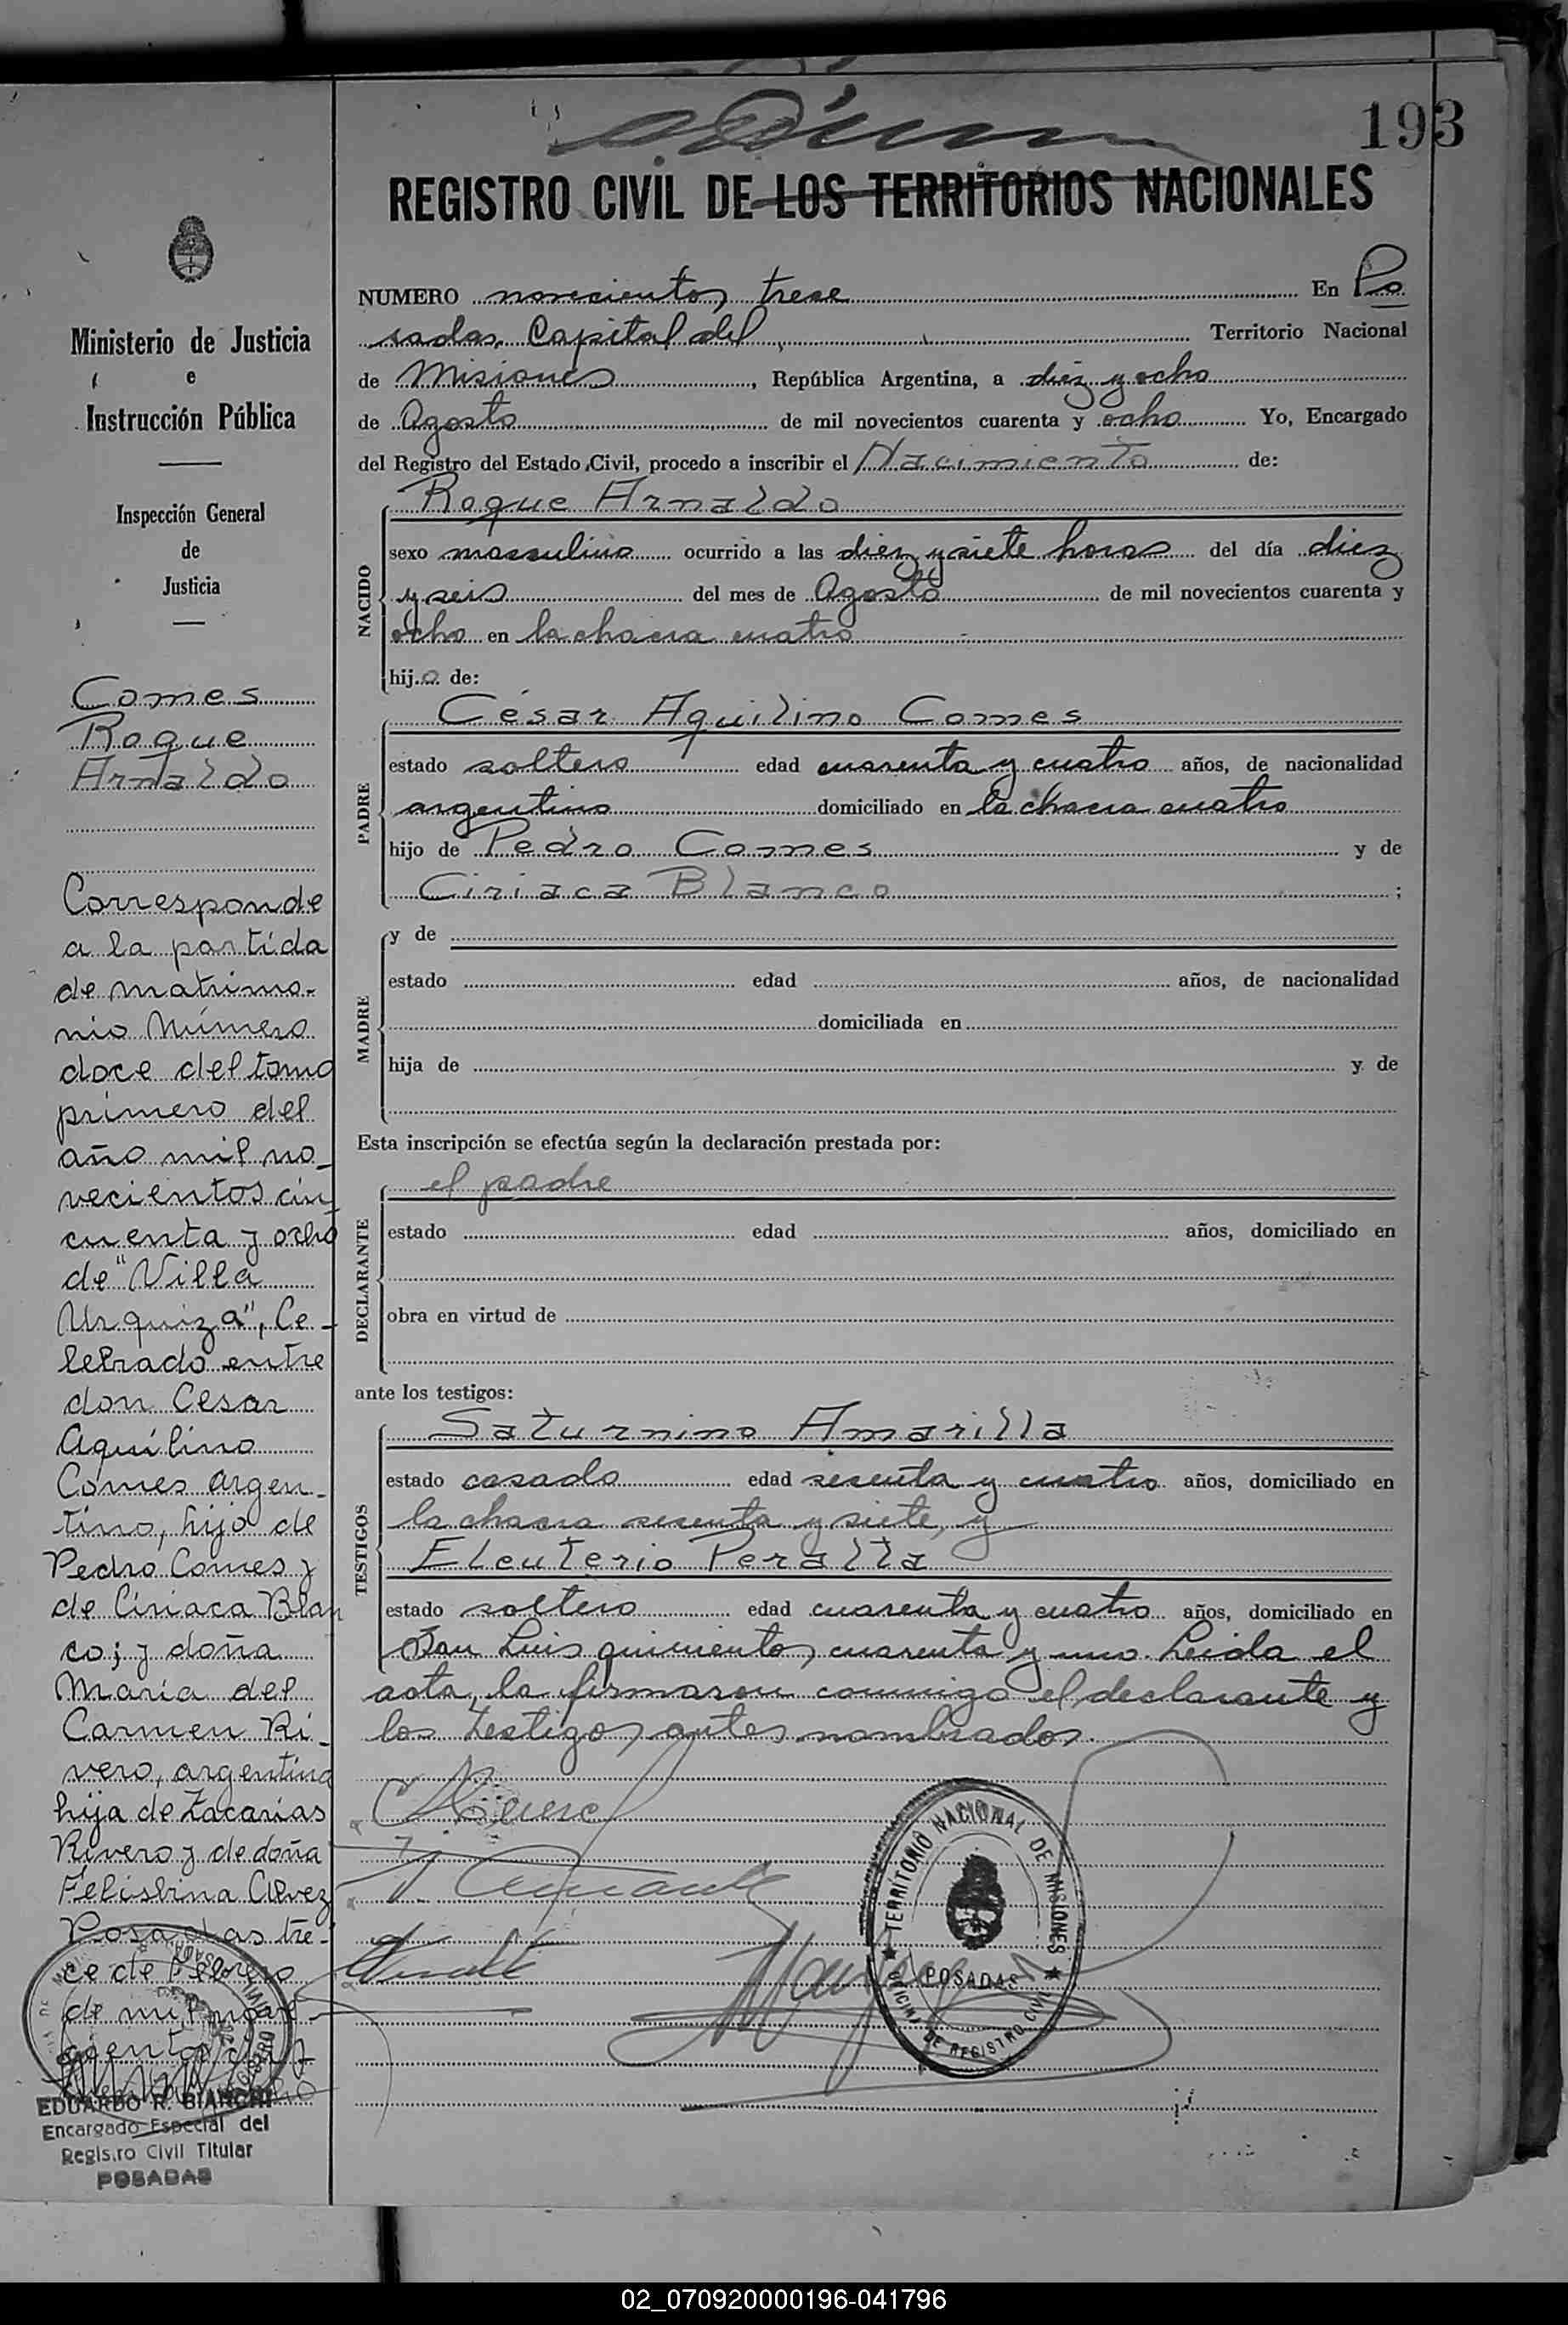 193
REGISTRO CIVIL DE LOS TERRITORIOS NACIONALES
Ministerio de Justicia
e
Instrucción Pública
Inspección General
de
Justicia
Comes
Roque
Arnaldo
Corresponde
a la partida
de matrimo-
nio Número
doce del tomo
primero del
año mil no-
vecientos cin
cuenta y ocho
de "Villa
Urquiza", Ce-
lebrado entre
don Cesar
Aquilino
Comes argen-
tino, hijo de
Pedro Comes y
de Ciriaca Blan
co; y doña
Maria del
Carmen Ri-
vero, argentina
hija de Zacarías
Rivero y de doña
Felisbina Alvez
Posadas tre-
ce de Febrero
de mil nove-
cientos
EDUARDO R. BIANCHI
Encargado Especial del
Regis.ro Civil Titular
POSADAS
NUMERO novecientos trece En Po
sadas, Capital del Territorio Nacional
de Misiones, República Argentina, a diez y ocho
de Agosto de mil novecientos cuarenta y ocho Yo, Encargado
del Registro del Estado Civil, procedo a inscribir el Nacimiento de:
NACIDO
Roque Arnaldo
sexo masculino ocurrido a las diez y siete horas del día diez
y seis del mes de Agosto de mil novecientos cuarenta y
ocho en la chacra cuatro
hijo de:
PADRE
César Aquilino Comes
estado soltero edad cuarenta y cuatro años, de nacionalidad
argentino domiciliado en la chacra cuatro
hijo de Pedro Comes y de
Ciriaca Blanco ;
MADRE
y de
estado edad años, de nacionalidad
domiciliada en
hija de y de
Esta inscripción se efectúa según la declaración prestada por:
DECLARANTE
el padre
estado edad años, domiciliado en
obra en virtud de
ante los testigos:
TESTIGOS
Saturnino Amarilla
estado casado edad sesenta y cuatro años, domiciliado en
la chacra sesenta y siete, y
Eleuterio Peralta
estado soltero edad cuarenta y cuatro años, domiciliado en
San Luis quinientos cuarenta y uno. Leida el
acta, la firmaron conmigo el declarante y
los testigos antes nombrados.
TERRITORIO NACIONAL DE MISIONES
POSADAS
OFICINA DE REGISTRO CIVIL
02_070920000196-041796